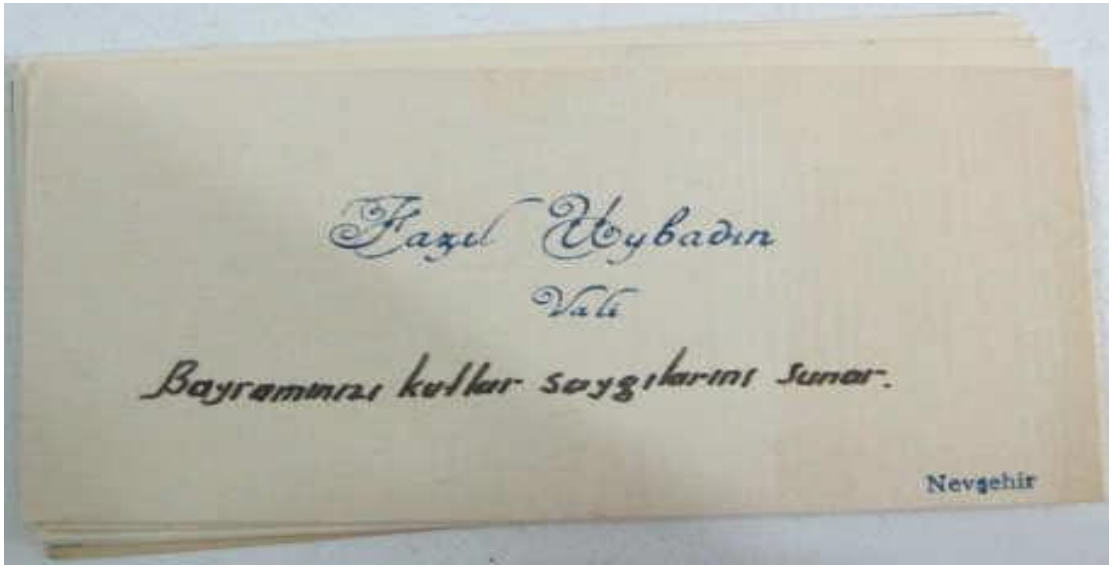 Fazıl Uybadın
Vali
Bayramınızı kutlar saygılarını sunar.
Nevşehir